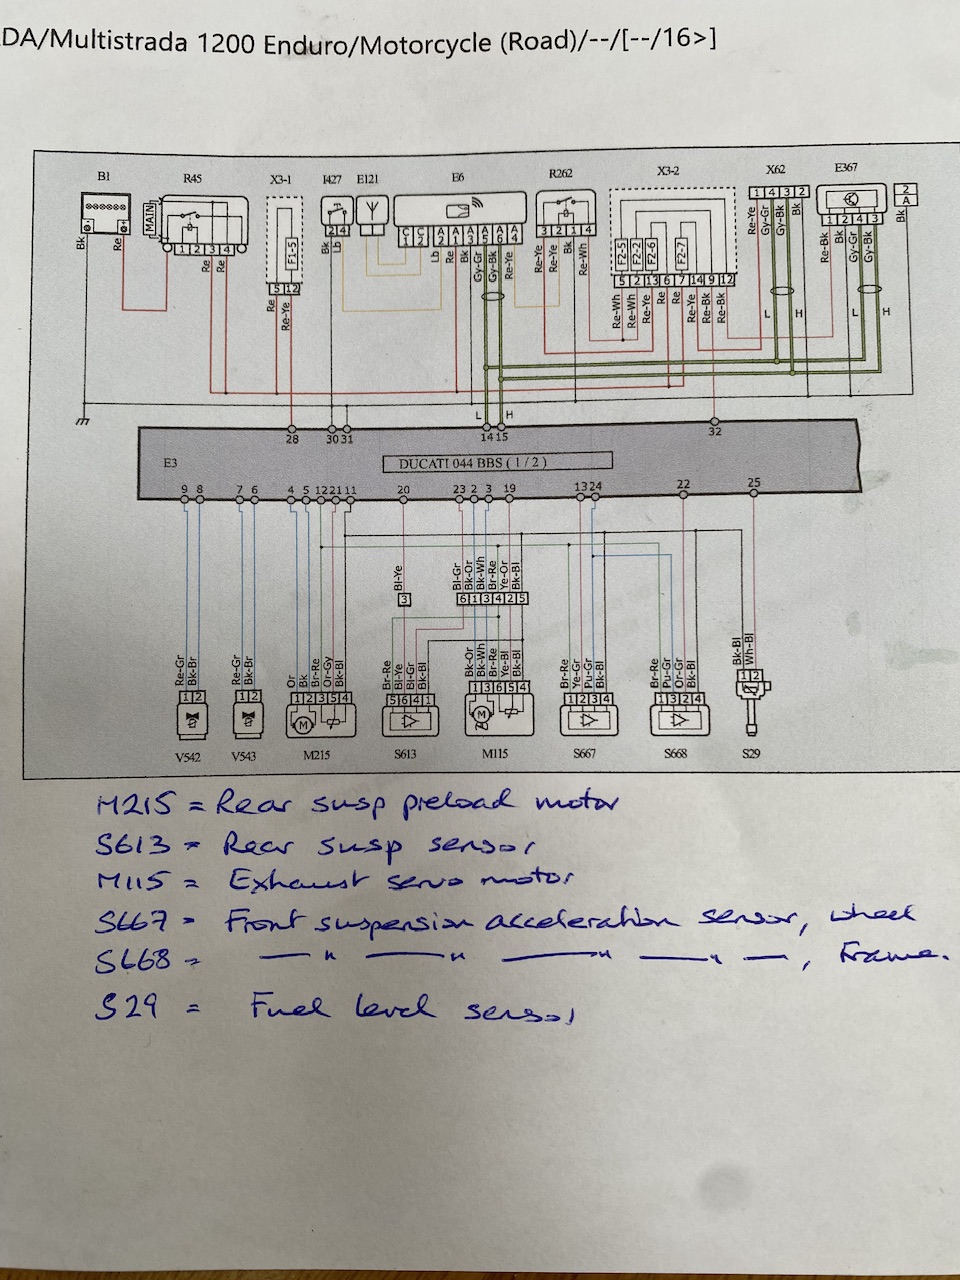 DA/Multistrada 1200 Enduro/Motorcycle (Road)/--/[--/16>]
B1 R45 X3-1 I427 E121 E6 R262 X3-2 X62 E367
MAIN
1 2 3 4
2 4
C1 C2 A2 A1 A3 A5 A6 A4
3 2 1 4
1 4 3 2
1 2 4 3
2 A
F1-5
F2-5 F2-2 F2-6 F2-7
5 12
5 2 13 6 7 14 9 12
Bk Re Re Re Re Re-Ye Bk Lb Lb Re Bk Gy-Gr Gy-Bk Re-Ye Re-Ye Re-Ye Bk Re-Wh Re-Wh Re-Wh Re-Ye Re Re Re-Ye Re-Bk Re-Bk Re-Ye Gy-Gr Gy-Bk Bk Re-Bk Bk Gy-Gr Gy-Bk Bk
L H L H
L H
28 30 31 14 15 32
E3 DUCATI 044 BBS ( 1 / 2 )
9 8 7 6 4 5 12 21 11 20 23 2 3 19 13 24 22 25
Bl-Ye Bl-Gr Bk-Or Bk-Wh Br-Re Ye-Or Bk-Bl
3 6 1 3 4 2 5
Re-Gr Bk-Br Re-Gr Bk-Br Or Bk Br-Re Or-Gy Bk-Bl Br-Re Bl-Ye Bl-Gr Bk-Bl Bk-Or Bk-Wh Br-Re Ye-Bl Bk-Bl Br-Re Ye-Gr Pu-Gr Bk-Bl Br-Re Pu-Gr Or-Gr Bk-Bl Bk-Bl Wh-Bl
1 2 1 2 1 2 3 5 4 5 6 4 1 1 3 6 5 4 1 2 3 4 1 3 2 4 1 2
M M
V542 V543 M215 S613 M115 S667 S668 S29
M215 = Rear susp preload motor
S613 = Rear susp sensor
M115 = Exhaust servo motor
S667 = Front suspension acceleration sensor, wheel
S668 = — " — " — " — " —, Frame.
S29 = Fuel level sensor